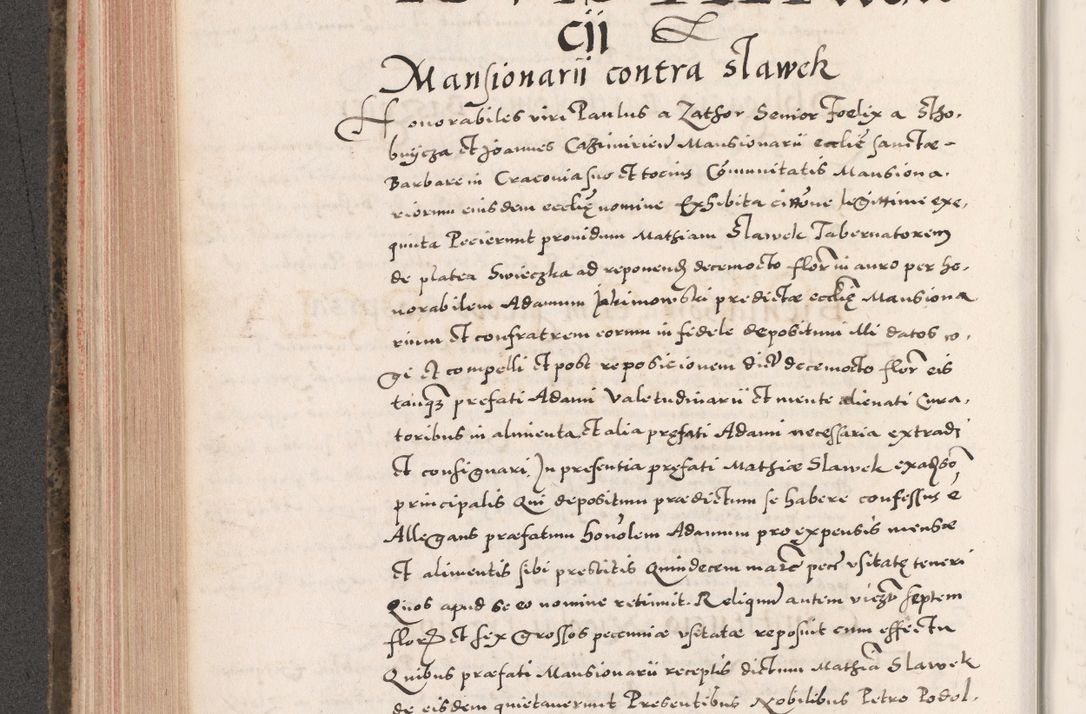 cii
Mansionarii contra Slawek
Honorabiles viri Paulus a Zathor Senior Foelix a Sko-
buycza et Joannes Cazimirien Mansionarii ecclie sanctae
Barbare in Cracovia suo et tocius Comunitatis Mansiona-
riorum eiusdem ecclie nomine Exhibita cittone legittime exe-
quuta Pecierunt providum Mathiam Slawek Tabernatorem
de platea Swieczka ad reponend decemocto flor in auro per ho-
norabilem Adamum predictae ecclie Mansiona
rium et confratrem eorum in fidele depositum illi datos co-
gi et compelli et post reposicionem dict decemocto flor eis
tanq prefati Adami Valetudinarii et mente alienati Cura-
toribus in alimenta et alia prefati Adami necessaria extradi
et consignari. In presentia prefati Mathie Slawek
principalis Qui depositum praedictum se habere confessus e
Allegans praefatum honolem Adamum pro expensis mensae
et alimentis sibi prestitis Quindecem marc pecc usitate teneri
Quos apud se eo nomine retinuit. Reliquu autem septem
flor et sex Grossos pecuniae usitatae reposuit cum effectu
Quibus praefati Mansionarii receptis dictum Mathia Slawek
de eisdem quietaverunt Presentibus Nobilibus Petro Podol-